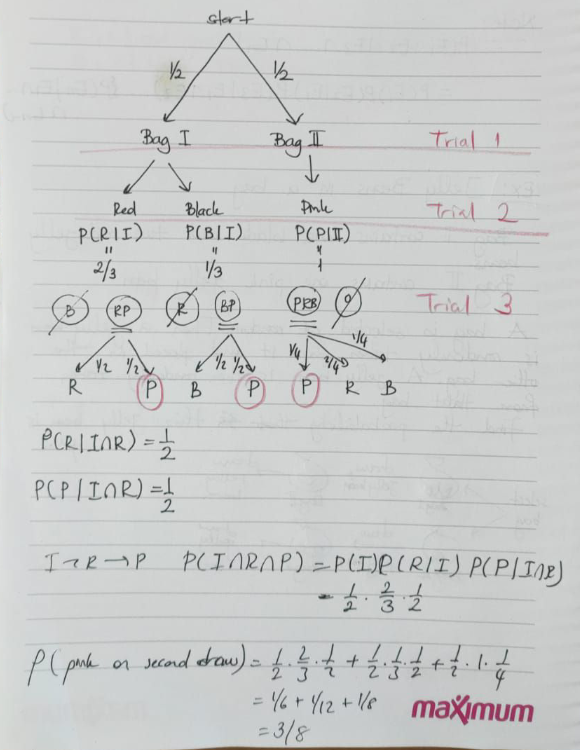 start
1/2 1/2
Bag I Bag II Trial 1
Red Black Pink Trial 2
P(R|I) P(B|I) P(P|II)
" " "
2/3 1/3 1
B RP R BP PRB 0 Trial 3
1/2 1/2 1/2 1/2 1/4 2/4 1/4
R P B P P R B
P(R|I∩R) = 1/2
P(P|I∩R) = 1/2
I → R → P P(I∩R∩P) = P(I)P(R|I) P(P|I∩R)
= 1/2 · 2/3 · 1/2
P(pink on second draw) = 1/2 · 2/3 · 1/2 + 1/2 · 1/3 · 1/2 + 1/2 · 1 · 1/4
= 1/6 + 1/12 + 1/8
= 3/8
maximum